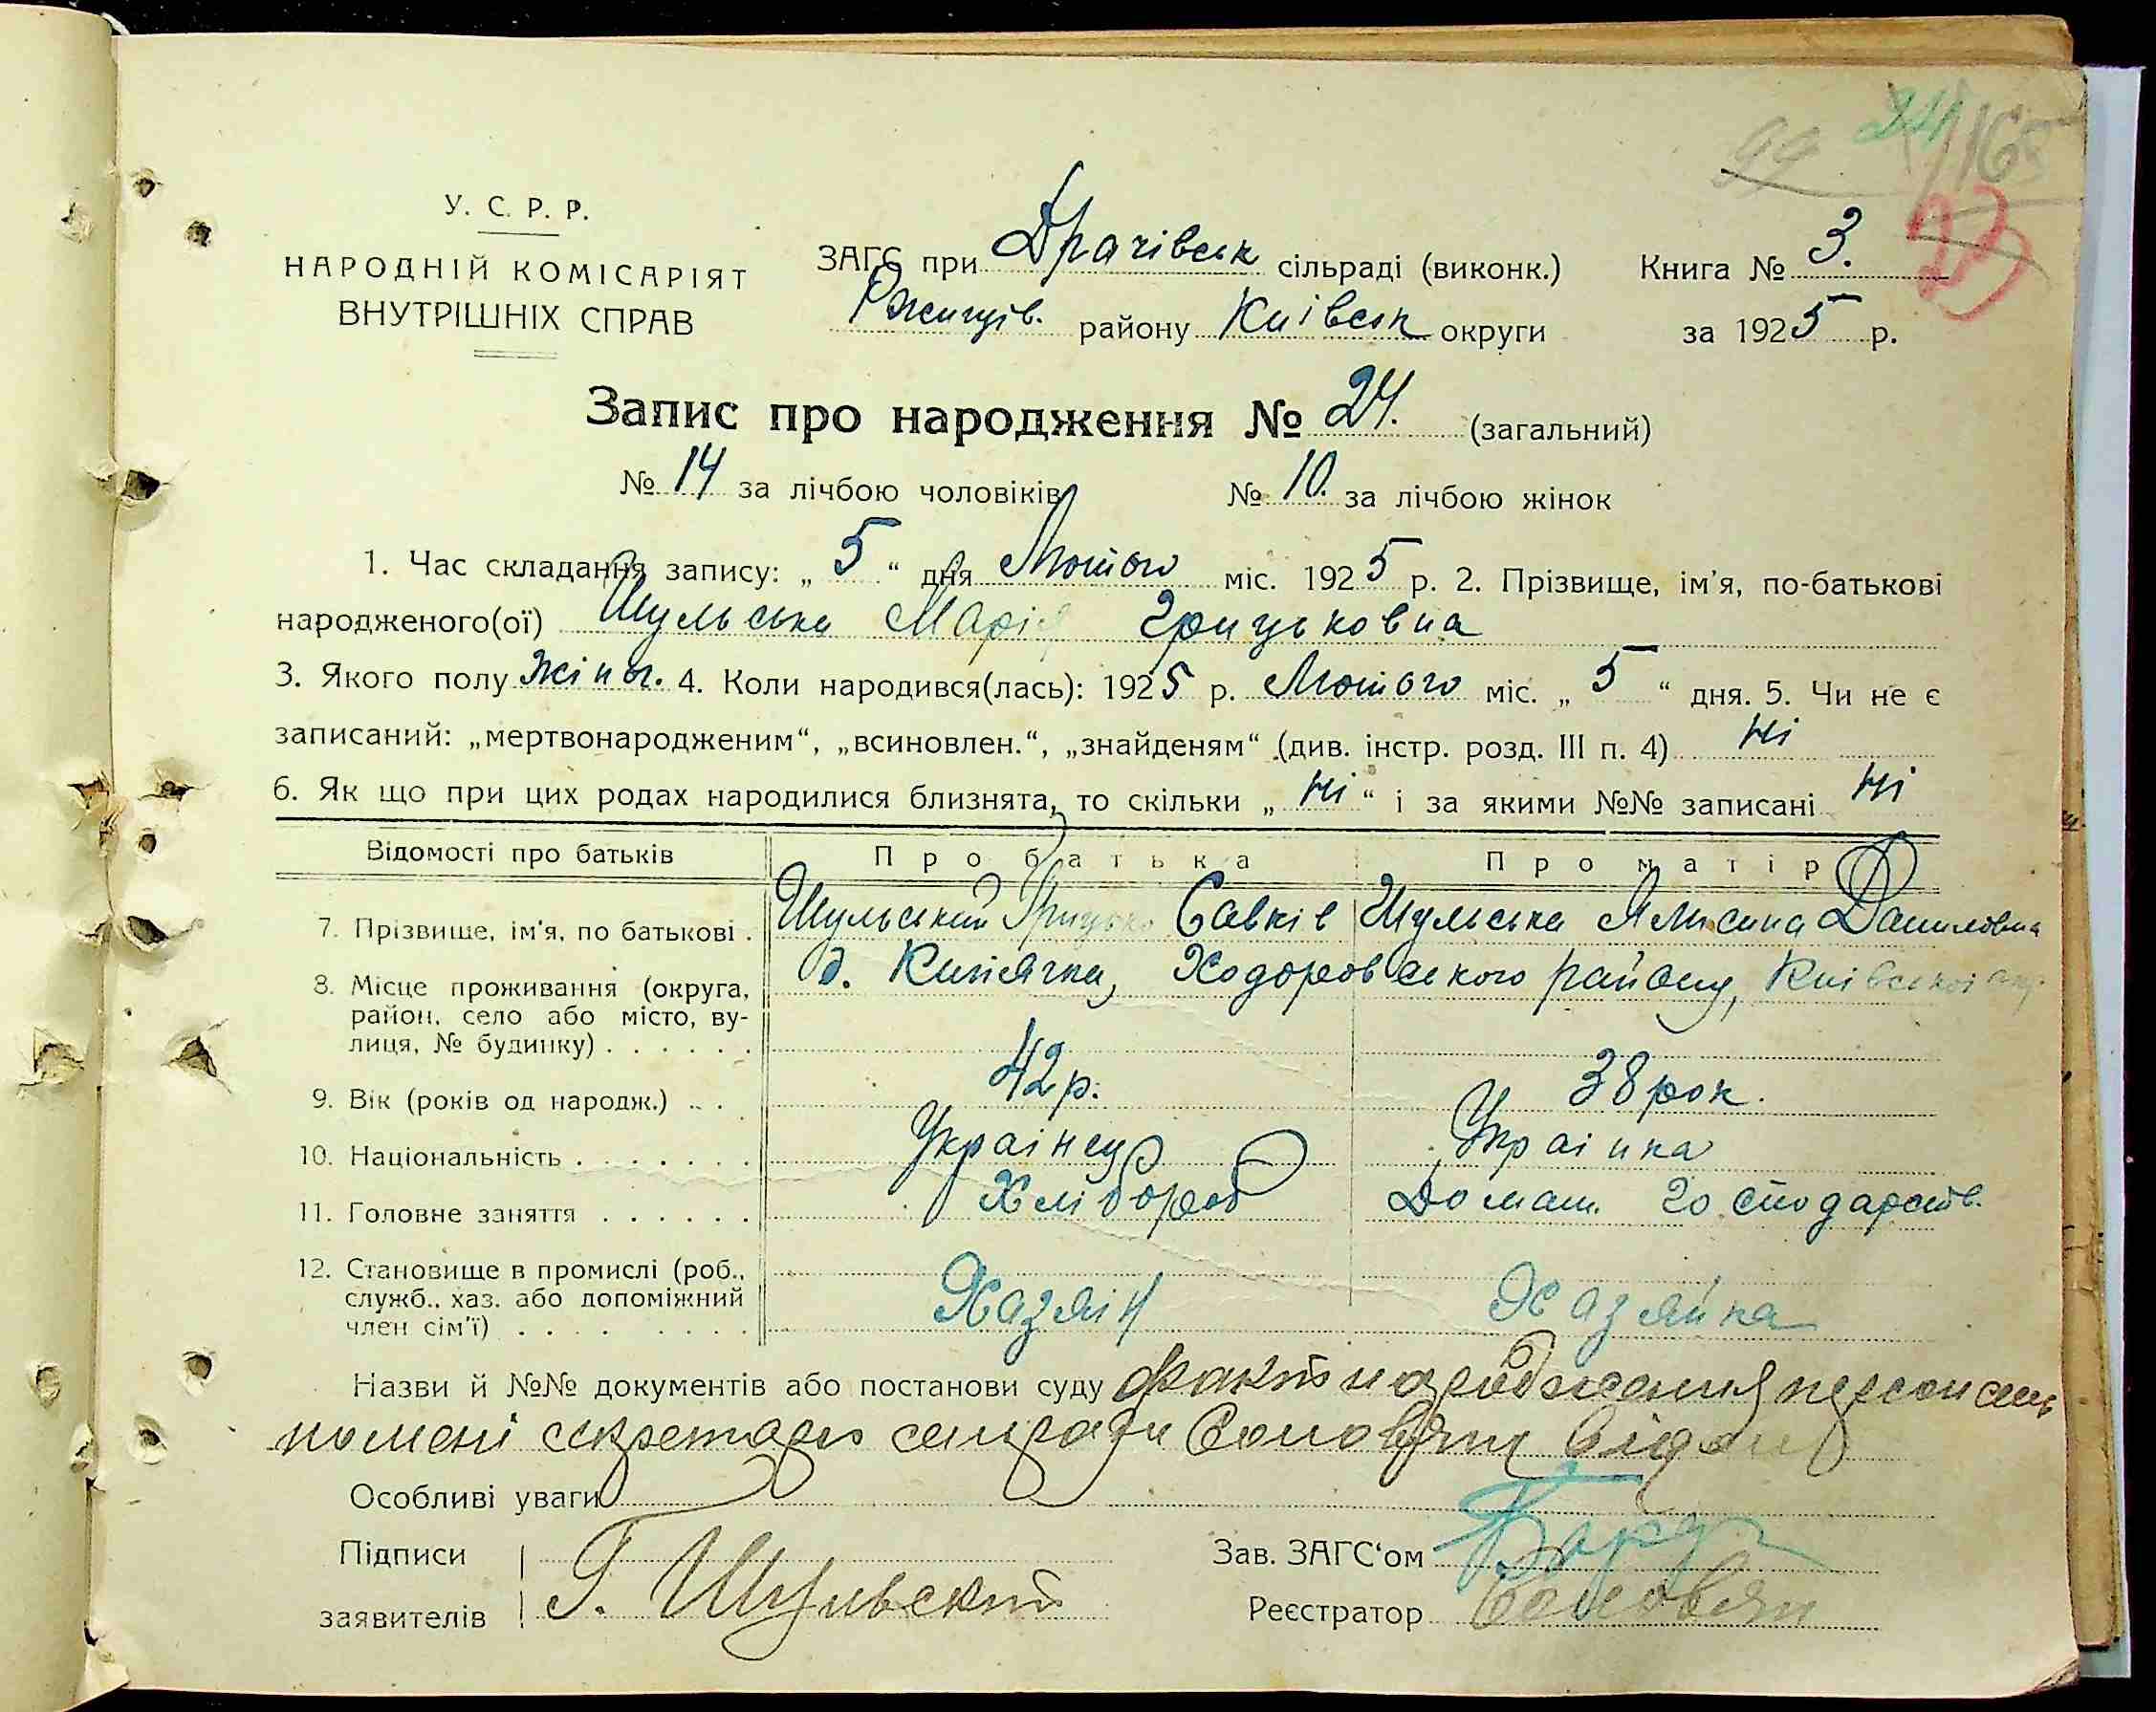 99 24 168
23
У. С. Р. Р.
НАРОДНІЙ КОМІСАРІЯТ
ВНУТРІШНІХ СПРАВ
ЗАГС при Драчівськ сільраді (виконк.) Книга № 3.
Ржищів. району Київськ округи за 1925 р.
Запис про народження № 24. (загальний)
№ 14 за лічбою чоловіків № 10. за лічбою жінок
1. Час складання запису: „ 5 “ дня Лютого міс. 1925 р. 2. Прізвище, ім'я, по-батькові
народженого(ої) Шульська Марія Грицьковна
3. Якого полу жіноч. 4. Коли народився(лась): 1925 р. Лютого міс. „ 5 “ дня. 5. Чи не є
записаний: „мертвонародженим“, „всиновлен.“, „знайденям“ (див. інстр. розд. III п. 4) Ні
6. Як що при цих родах народилися близнята, то скільки „ Ні “ і за якими №№ записані Ні
Відомості про батьків Про батька Про матір
7. Прізвище, ім'я, по батькові . Шульський Грицько Савків Шульська Даниловна
8. Місце проживання (округа, Ходоровського району, Київської окр.
район, село або місто, ву-
лиця, № будинку) . . . . . .
9. Вік (років од народж.) . . . 42 р. 38 рок.
10. Національність . . . . . . . Украінець Украінка
11. Головне заняття . . . . . . Хлібороб Домаш. господарств.
12. Становище в промислі (роб.,
служб., хаз. або допоміжний Хазяїн Хазяйка
член сім'ї) . . . . . . . .
Назви й №№ документів або постанови суду факт народження
мені секретарю сільради
Особливі уваги
Підписи Зав. ЗАГС'ом
заявителів Г. Шульський Реєстратор